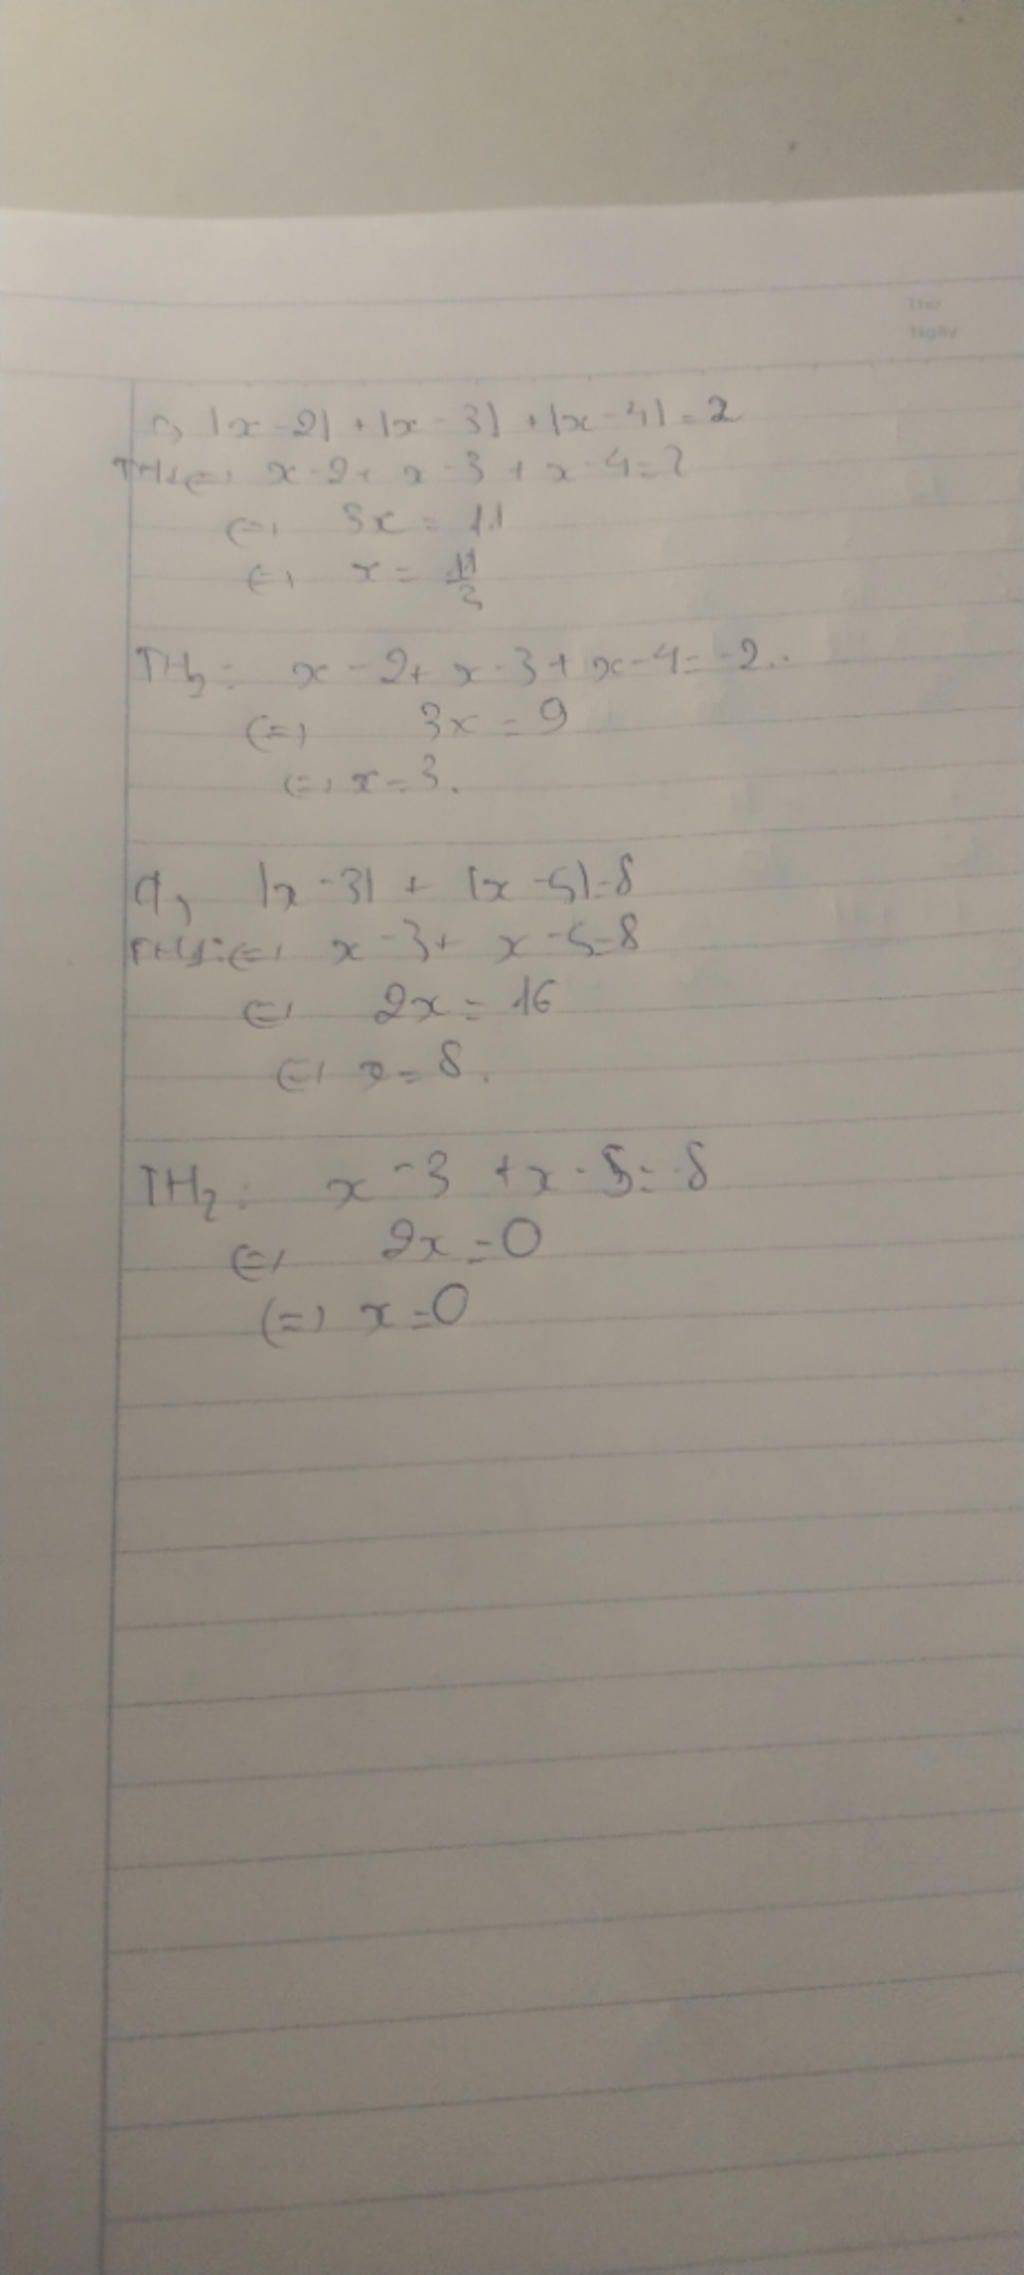 Thứ
Ngày
c, |x-2| + |x-3| + |x-4| = 2
TH1 <=> x-2+ x-3 + x-4=2
<=> 3x = 11
<=> x = 11/3
TH2: x-2+ x-3+x-4=-2..
<=> 3x = 9
<=> x=3.
d, |x-3| + |x-5|=8
TH1: <=> x-3+ x-5=8
<=> 2x = 16
<=> x=8.
TH2: x-3 +x-5=-8
<=> 2x=0
<=> x=0